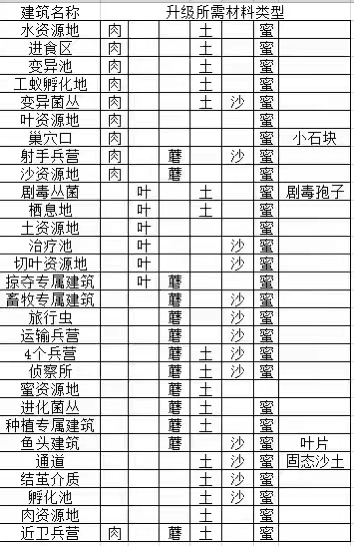 建筑名称 升级所需材料类型
水资源地 肉 土 蜜
进食区 肉 土 蜜
变异池 肉 土 蜜
工蚁孵化地 肉 土 蜜
变异菌丛 肉 土 沙 蜜
叶资源地 肉 蜜
巢穴口 肉 蜜 小石块
射手兵营 肉 蘑 沙 蜜
沙资源地 肉 蘑 蜜
剧毒丛菌 叶 土 蜜 剧毒孢子
栖息地 叶 土 蜜
土资源地 叶 蜜
治疗池 叶 沙 蜜
切叶资源地 叶 沙 蜜
掠夺专属建筑 叶 蘑 蜜
畜牧专属建筑 蘑 沙 蜜
旅行虫 蘑 沙 蜜
运输兵营 蘑 沙 蜜
4个兵营 蘑 土 沙 蜜
侦察所 蘑 土 沙 蜜
蜜资源地 蘑 土
进化菌丛 蘑 土 蜜
种植专属建筑 蘑 土 蜜
鱼头建筑 蘑 沙 蜜 叶片
通道 土 沙 蜜 固态沙土
结茧介质 土 沙 蜜
孵化池 土 沙 蜜
肉资源地 土 蜜
近卫兵营 肉 蘑 土 蜜